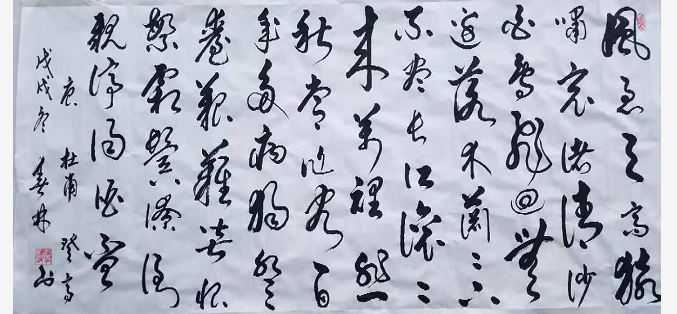 風急天高猿
嘯哀渚清沙
白鳥飛回無
邊落木蕭〻下
不盡長江滾〻
來萬裡悲
秋常作客百
年多病獨登
臺艱難苦恨
繁霜鬢潦倒
新停濁酒杯
唐 杜甫 登高
戊戌冬 春林